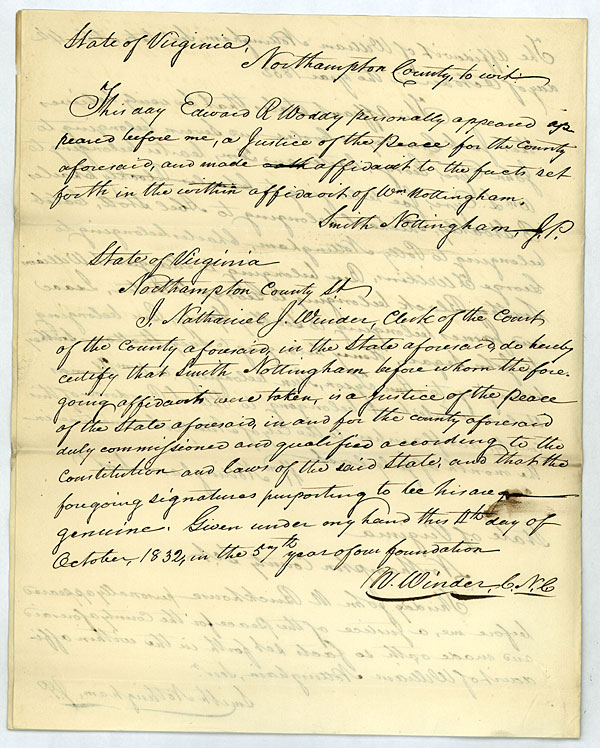 State of Virginia,
Northampton County, to wit:
This day Edward R Wodday, personally appeared ap
peared before me, a Justice of the Peace for the County
aforesaid, and made oath affidavit to the facts set
forth in the within affidavit of Wm Nottingham.
Smith Nottingham, J.P.
State of Virginia
Northampton County St
I, Nathaniel J. Winder, Clerk of the Court
of the County aforesaid, in the State aforesaid, do hereby
certify that Smith Nottingham before whom the fore-
going affidavits were taken, is a Justice of the Peace
of the State aforesaid, in and for the county aforesaid
duly commissioned and qualified according to the
Constitution and laws of the said State, and that the
foregoing signatures purporting to be his are
genuine. Given under my hand this 11th day of
October, 1832, in the 57th year of our foundation
N. Winder, C.N.C